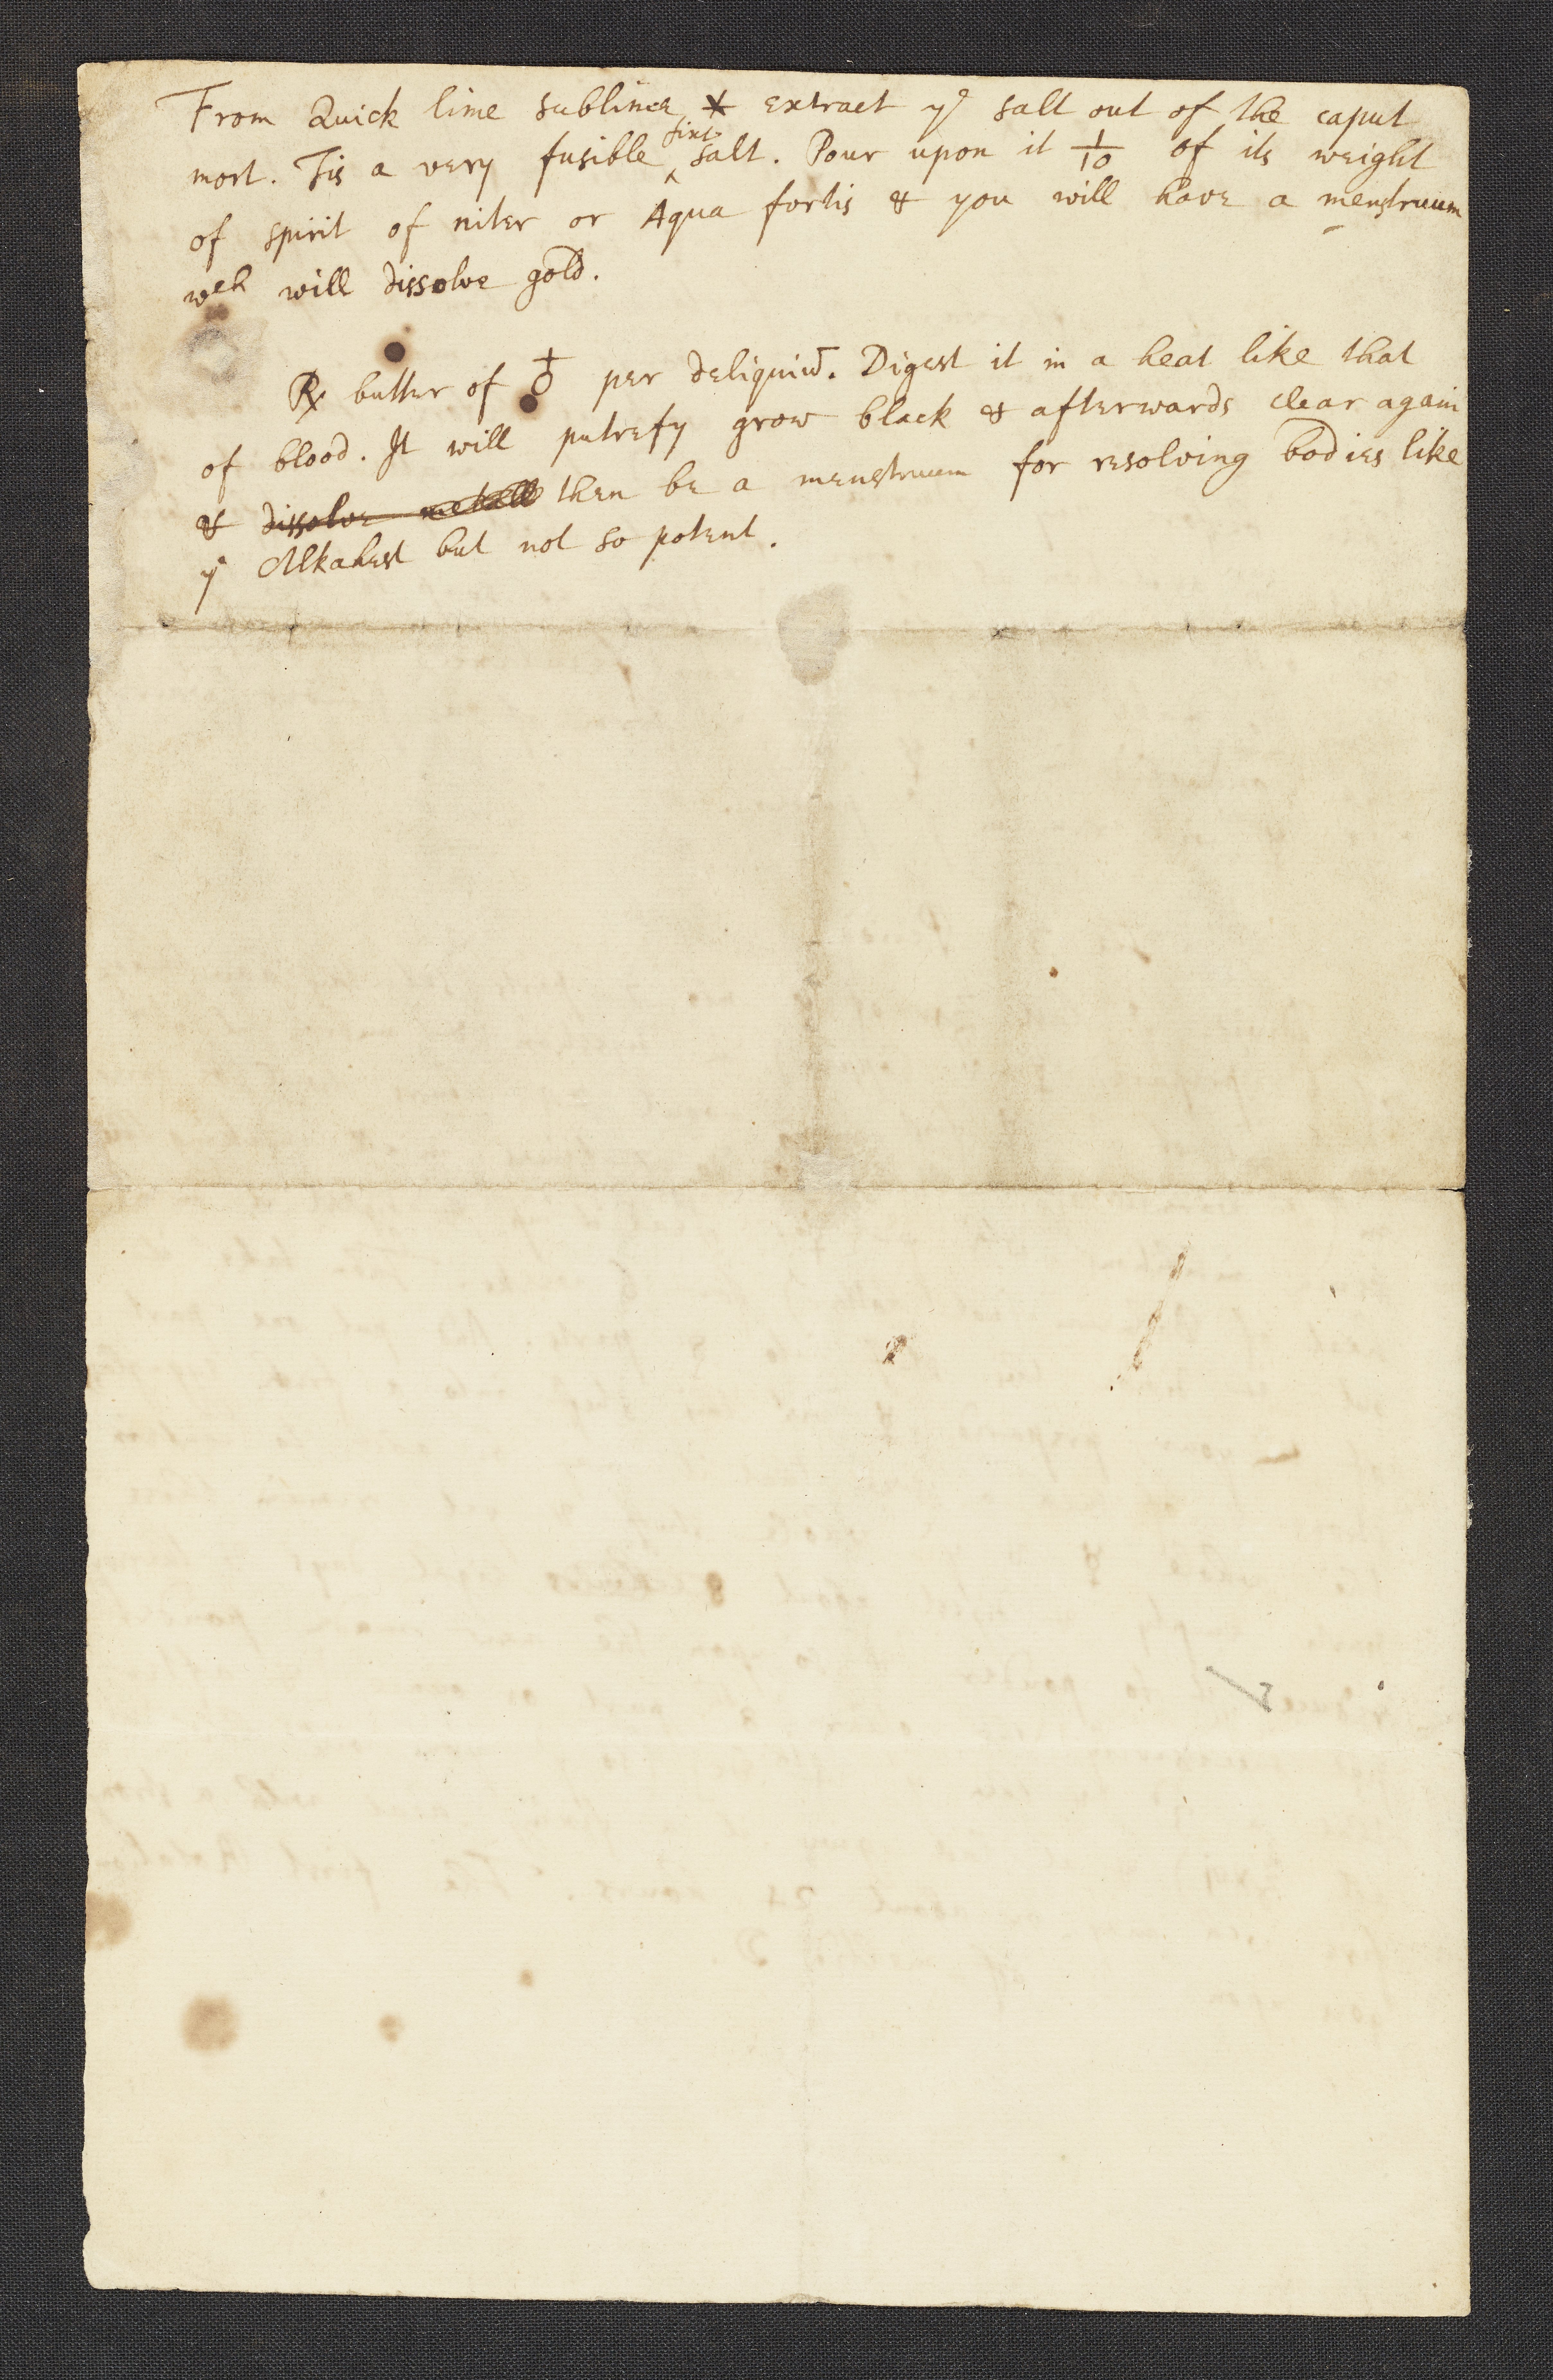 From Quick lime sublime ✶ extract yᵉ salt out of the caput
mort. Tis a very fusible ‸fixt salt. Pour upon it 1/10 of its weight
of spirit of niter or Aqua fortis & you will have a menstruum
wᶜʰ will dissolve gold.
℞ butter of ♁ per deliquiū. Digest it in a heat like that
of blood. It will putrefy grow black & afterwards clear again
& ~~dissolve metall~~ then be a menstruum for resolving bodies like
yᵉ Alkahest but not so potent.